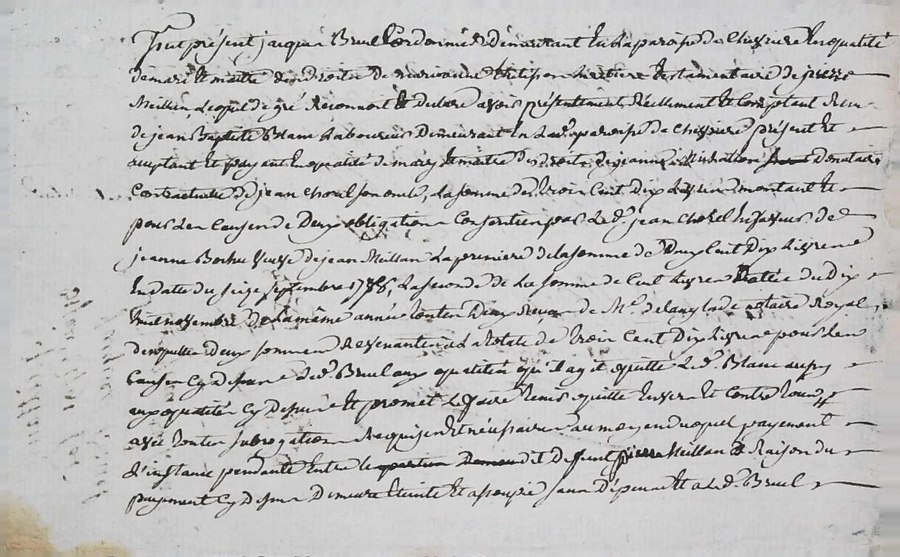 fut présent jacques Bruel Cordonnier demeurant En La paroisse de Chissiere En qualité
de mari Et maitre des droits de marianne heritiere testamentaire de pierre
Meillan, Lequel de gré Reconnoit Et declare avoir présentement Reellement Et Comptant Reçu
de jean Baptiste Blanc Laboureur Demeurant En La de paroisse de Chissiere présent Et
acceptant Et payant En qualité de mary Et maitre des droits de jeanne donataire
Contractuelle de jean Chorel son oncle, La somme de trois Cent Dix Livres montant Et
pour Les Causes de Deux obligations Consenties par Le d. jean Chorel En faveur de
jeanne Bochu Veuve de jean Meillan La premiere de la somme de Deux Cent Dix Livres
En datte du seize septembre 1788, La seconde de La somme de Cent Livres Datée du Dix
huit novembre de La même année toutes Deux Reçues de Me. Delanglade notaire Royal,
desquelles Deux sommes Revenantes a La totale de trois Cent Dix Livres pour Les
Causes Cy dessus Le d. Bruel aux qualités qu'il agit quitte Le d. Blanc aussy
aux qualités Cy dessus Et promet Le faire tenir quitte Envers Et Contre tous
avec toutes subrogations Requises Et nécessaires au moyen duquel payement
L'instance pendante Entre Le dit Defunt pierre Meillan Raison du
payement Cy dessus Demeure Eteinte Et assoupie, sans Dépens Et a Le d. Bruel